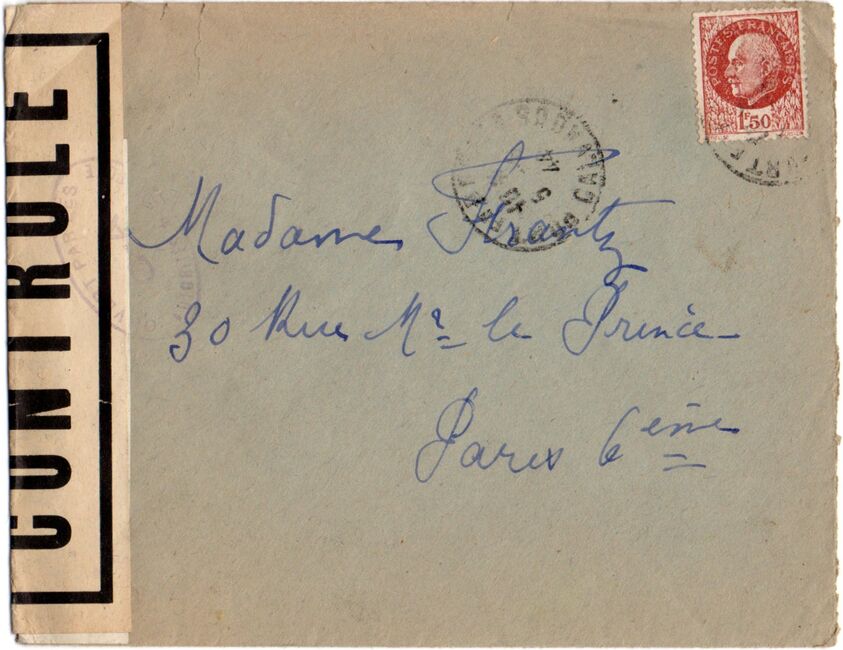 CONTROLE
POSTES FRANÇAISES
1F50
Madame Krantz
30 Rue Mr. le Prince
Paris 6eme